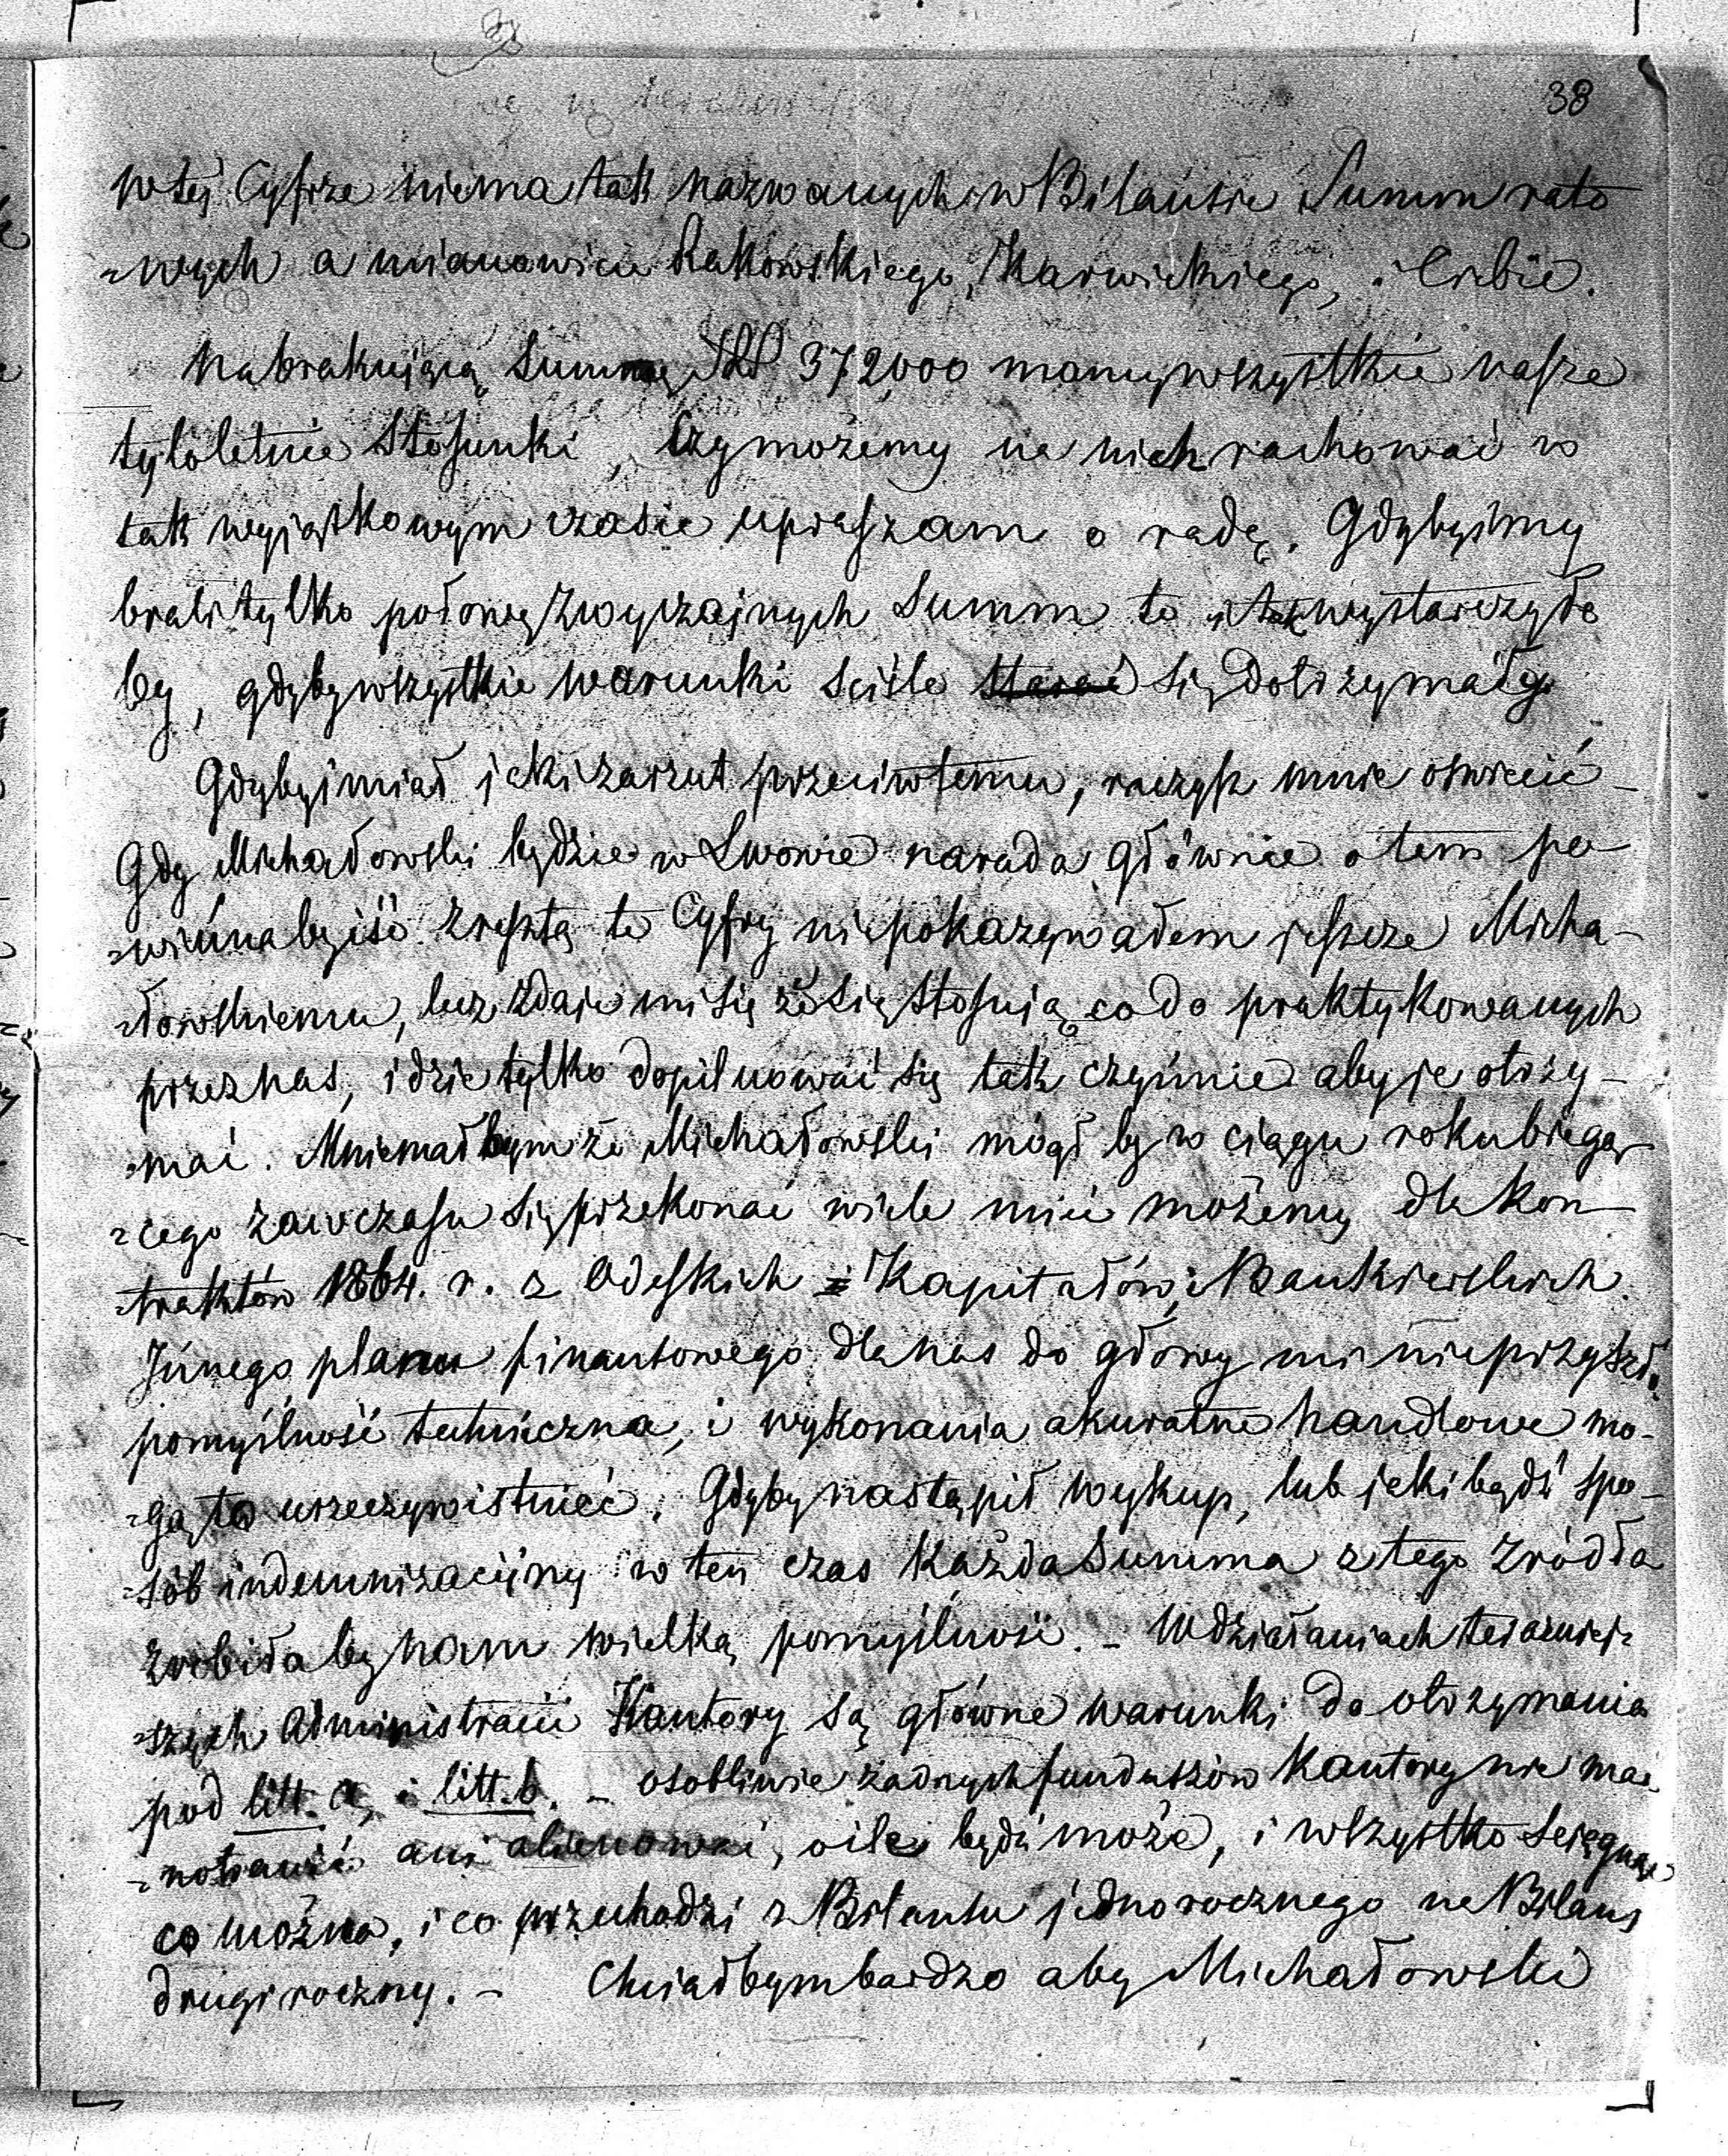 38
w tej Cyfrze niema tak nazwanych w Bilansie Summ rato
-wych a mianowicie Rakowskiego, Karwickiego, i Ciebie.
Na brakującą Summę 372,000 mamy wszystkie nasze
tyloletnie Stosunki, Czy możemy na nich rachować w
tak wyjątkowym czasie upraszam o radę. Gdybyśmy
brali tylko połowę zwyczajnych Summ to i tak wystarczyło
by, gdyby wszystkie warunki ściśle się dotrzymały.
Gdybyś miał jaki zarzut przeciw temu, raczysz mnie oświecić –
Gdy Michałowski będzie w Lwowie narada głównie o tem po-
-winna by iść zresztą te Cyfry niepokazywałem jeszcze Micha-
-łowskiemu, lecz zdaje mi się że się stosują co do praktykowanych
przez nas, idzie tylko dopilnować się tak czynnie aby je otrzy-
-mać. Mniemałbym że Michałowski mógłby w ciągu roku bieżą-
-cego zawczasu się przekonać wiele mieć możemy dla kon-
-traktów 1864. r. z Odeskich Kapitałów i Bankierskich.
Innego planu finansowego dla nas do głowy mi nieprzyszło,
pomyślność techniczna, i wykonania akuratne handlowe mo-
-gą to urzeczywistnieć. Gdyby nastąpił wykup, lub jaki bądź spo-
-sób indemnizacijny w ten czas każda Summa z tego źródła
zrobiła by nam wielką pomyślność. – W działaniach teraźniej-
-szych Administracii Kantory są główne warunki do otrzymania
pod litt. a, i litt. b. – osobliwie żadnych funduszów Kantory nie ma-
ani alienować, o ile bydź może, i wszystko ściągnąć
co można, i co przechodzi z Bilansu jednorocznego na Bilans
drugi roczny. – Chciałbym bardzo aby Michałowski